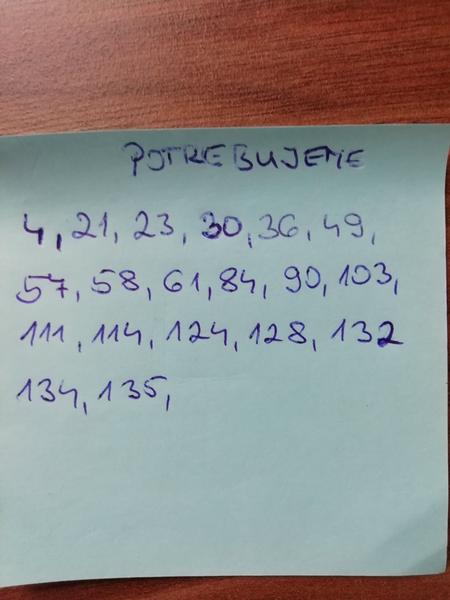 POTREBUJEME
4, 21, 23, 30, 36, 49,
57, 58, 61, 84, 90, 103,
111, 114, 124, 128, 132
134, 135,